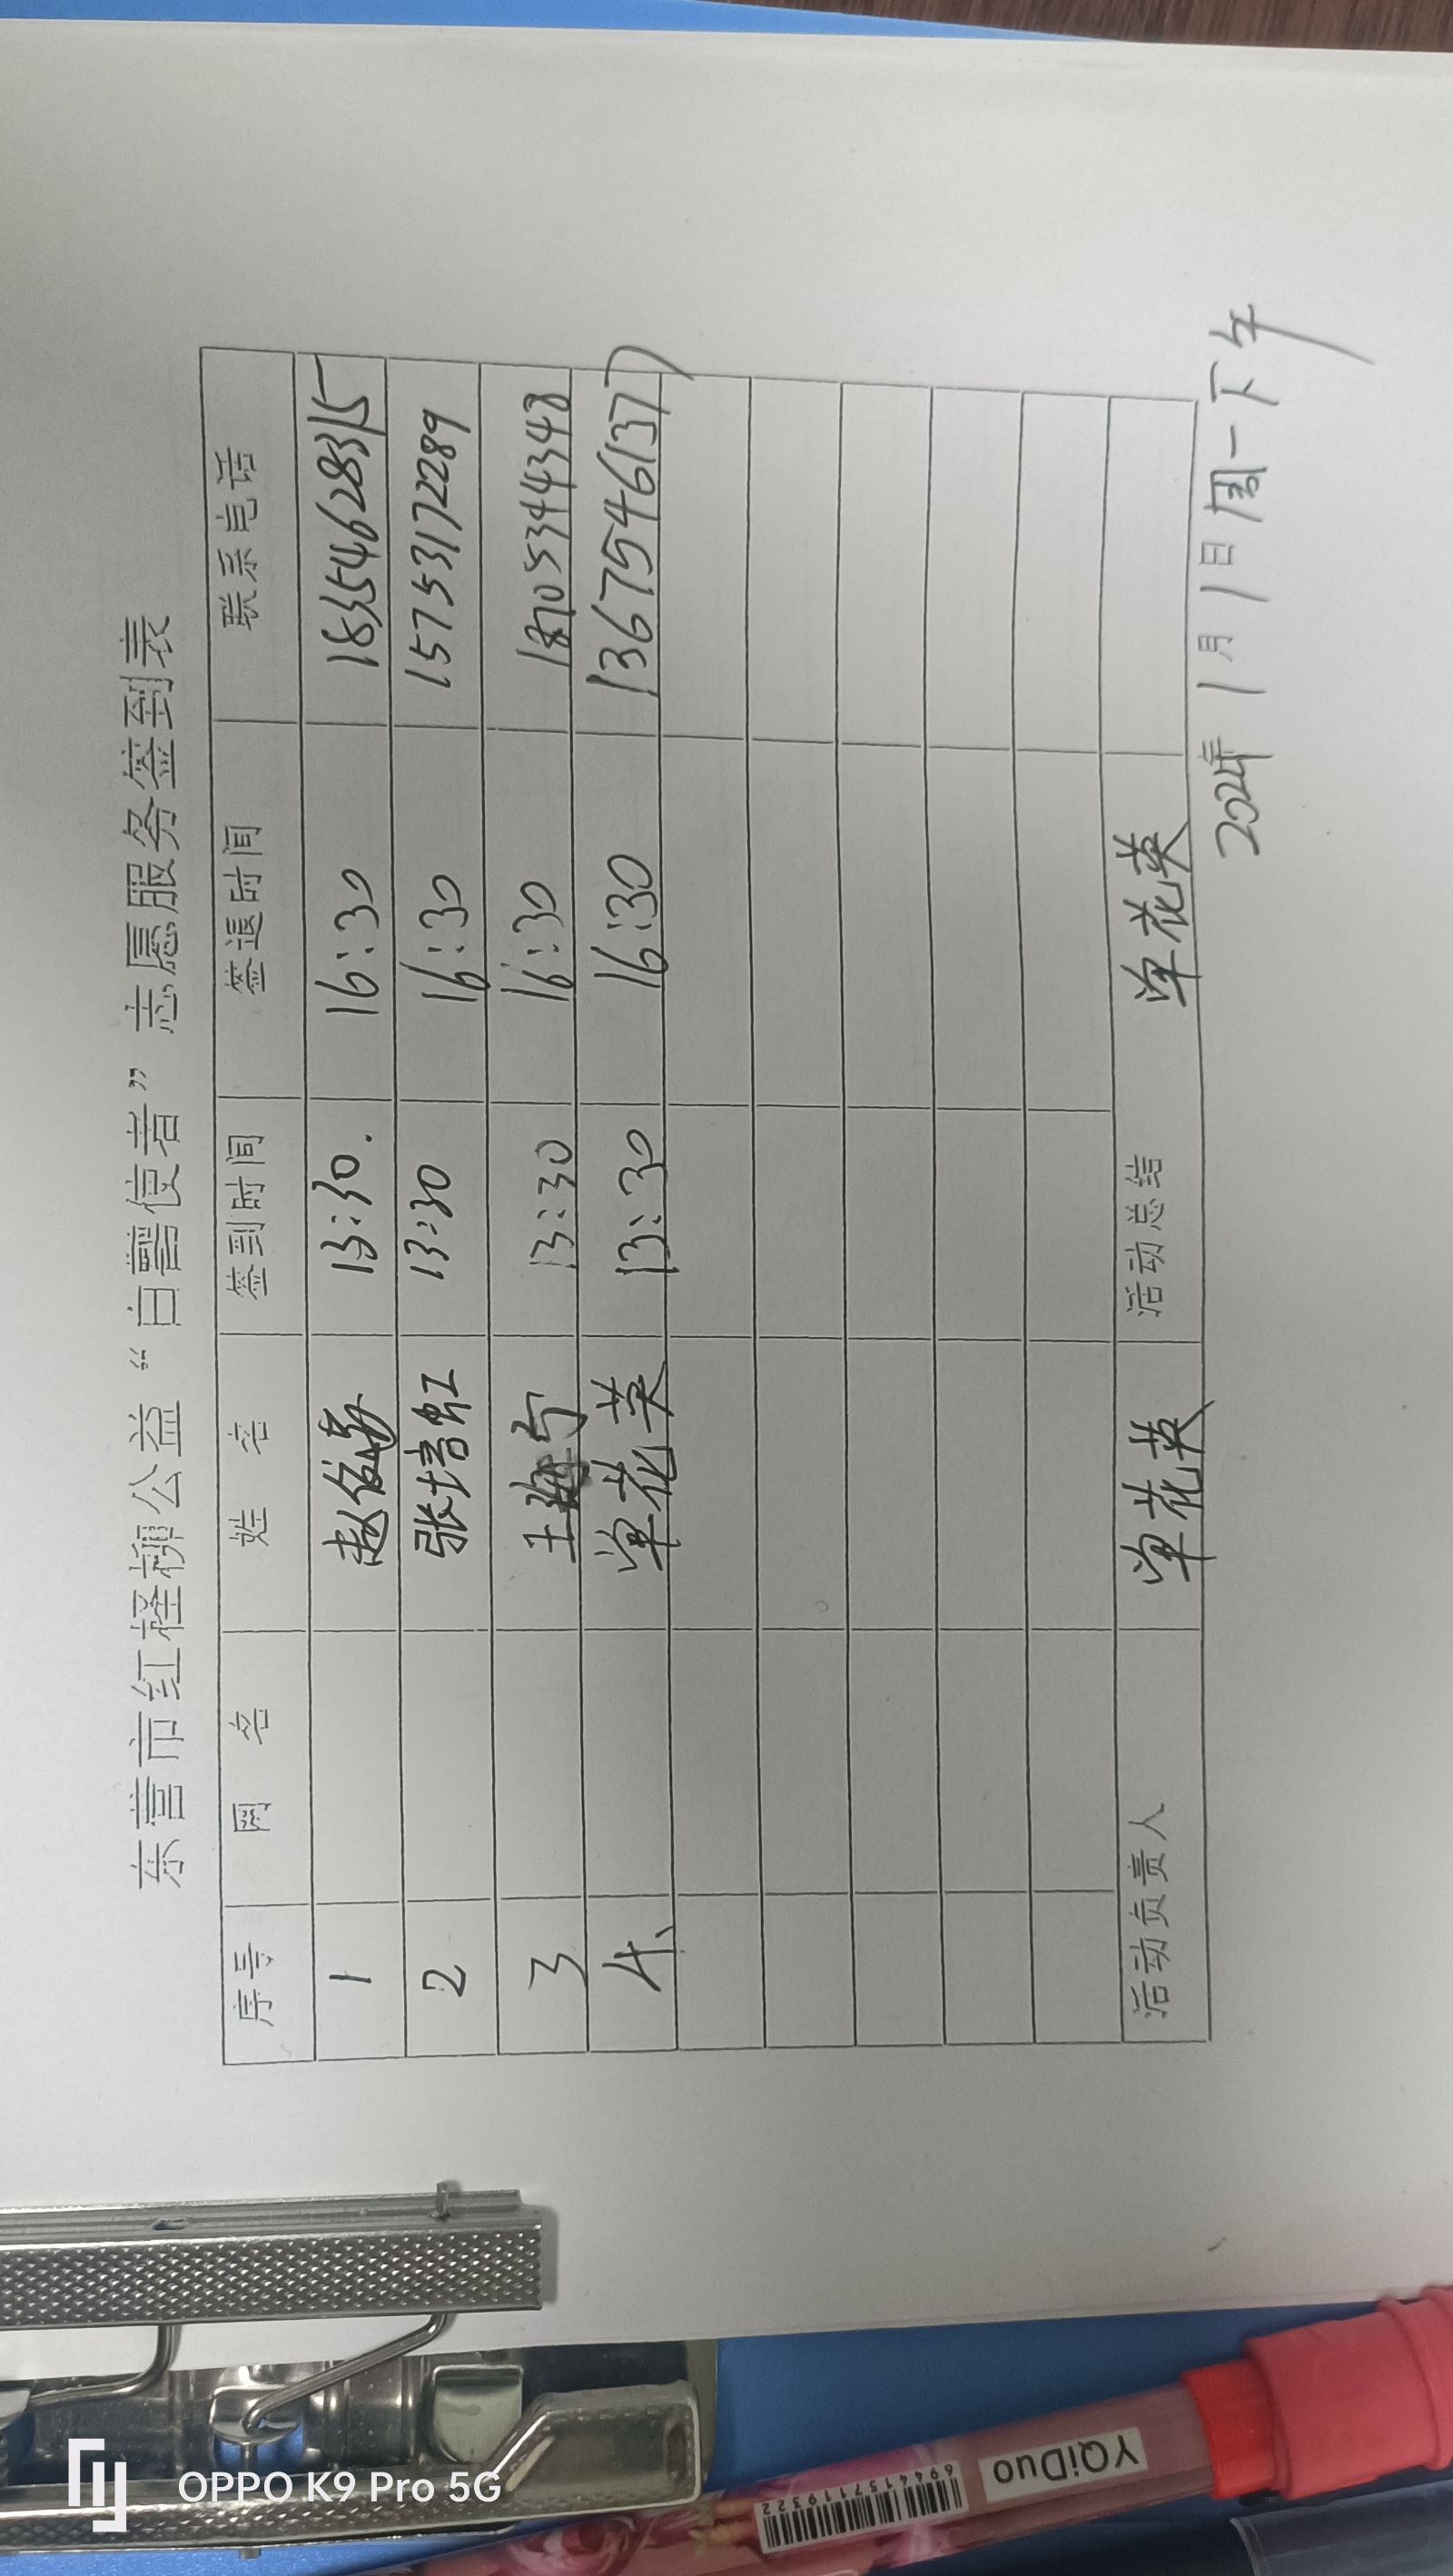 东营市红柽柳公益“白鹭使者”志愿服务签到表
序号 网 名 姓 名 签到时间 签退时间 联系电话
1 13:30. 16:30 18354628315
2 张培虹 13:30 16:30 15753172289
3 13:30 16:30 18705344348
4、 单花英 13:30 16:30 13675461377
活动负责人 单花英 活动总结 单花英
2024年 1月 1日 周一下午
OPPO K9 Pro 5G
YQiDuo
6944157119322